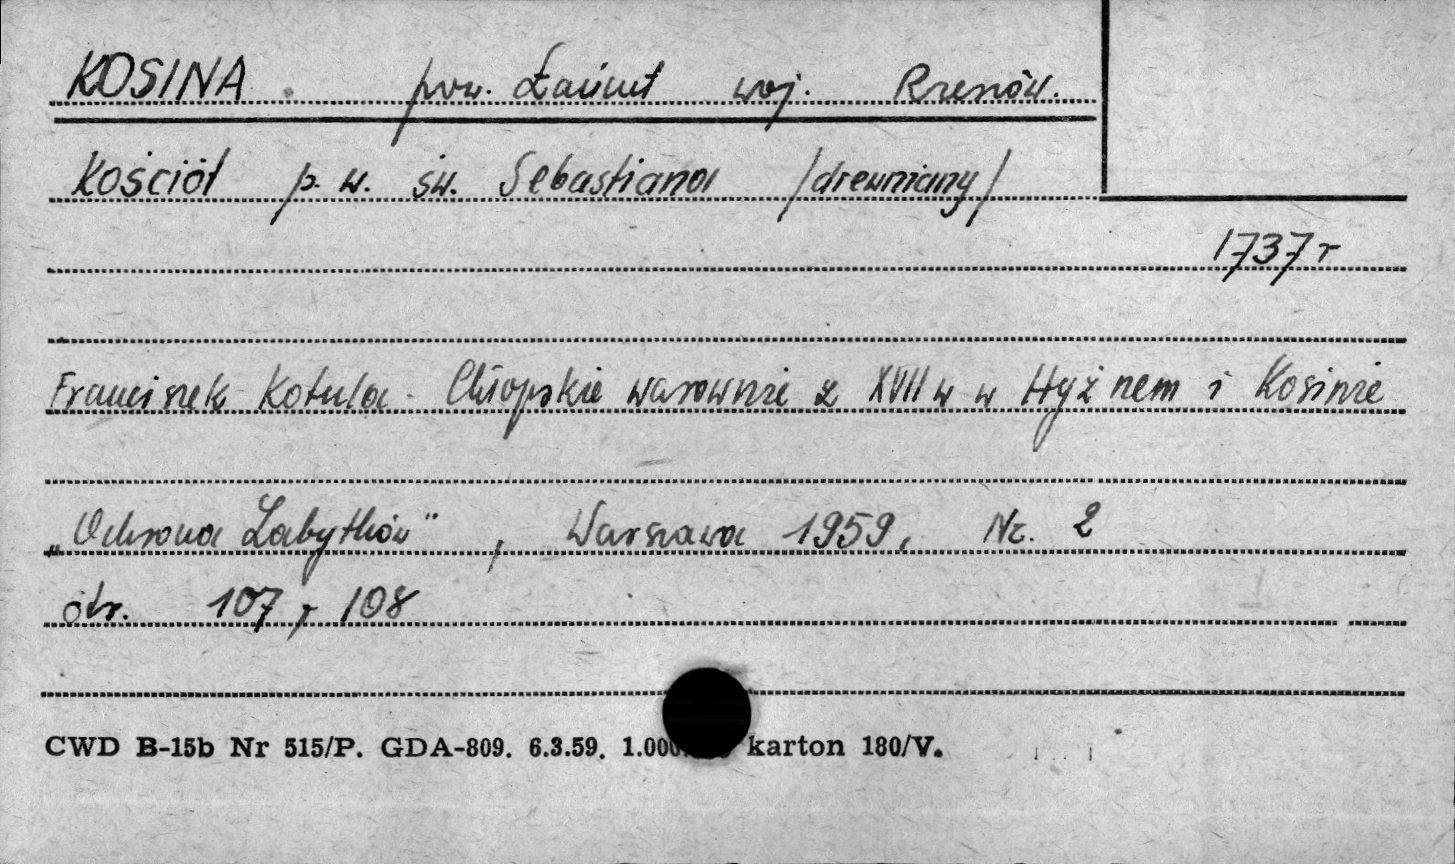 KOSINA. pow. Łańcut woj. Rzeszów.
Kościół p. w. św. Sebastiana /drewniany/
1737 r
Franciszek Kotula - Chłopskie warownie z XVII w w Hyżnem i Kosinie
„Ochrona Zabytków", Warszawa 1959, Nr. 2
str. 107, 108
CWD B-15b Nr 515/P. GDA-809. 6.3.59. karton 180/V.